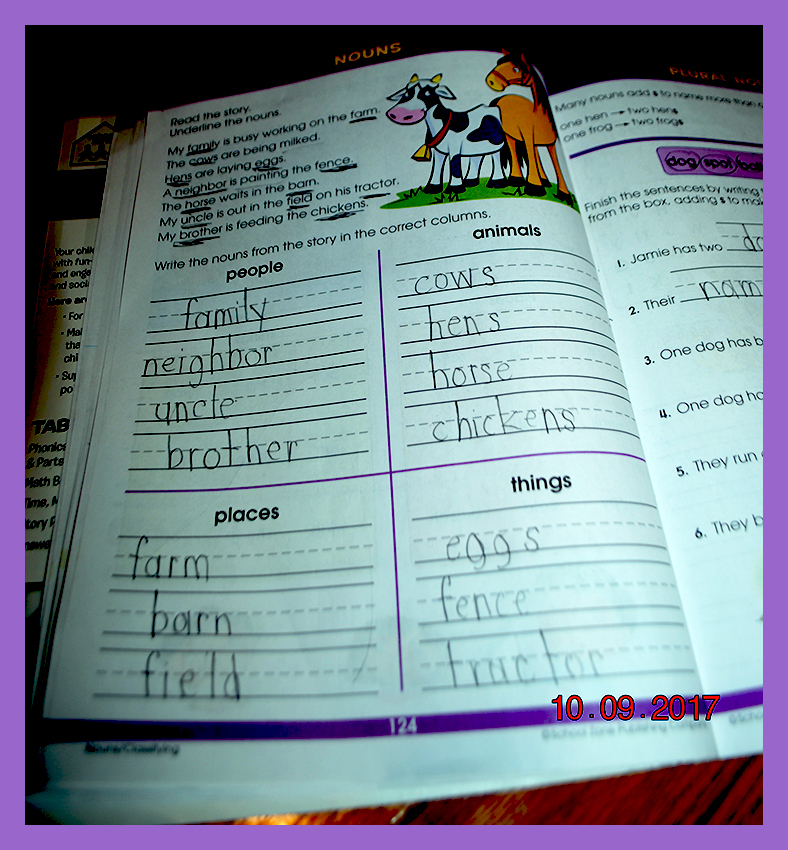 NOUNS
Read the story.
Underline the nouns.
My family is busy working on the farm.
The cows are being milked.
Hens are laying eggs.
A neighbor is painting the fence.
The horse waits in the barn.
My uncle is out in the field on his tractor.
My brother is feeding the chickens.
Write the nouns from the story in the correct columns.
people
family
neighbor
uncle
brother
animals
cows
hens
horse
chickens
places
farm
barn
field
things
eggs
fence
tractor
124
Nouns/Classifying
©School Zone Publishing Company
PLURAL
Many nouns add s to name more than
one hen → two hens
one frog → two frogs
dog spot
Finish the sentences by writing
from the box, adding s to
1. Jamie has two
2. Their
3. One dog has
4. One dog
5. They run
6. They
Your
with fun-
and
and
· For
TAB
Phonics
& Parts
Math
10.09.2017